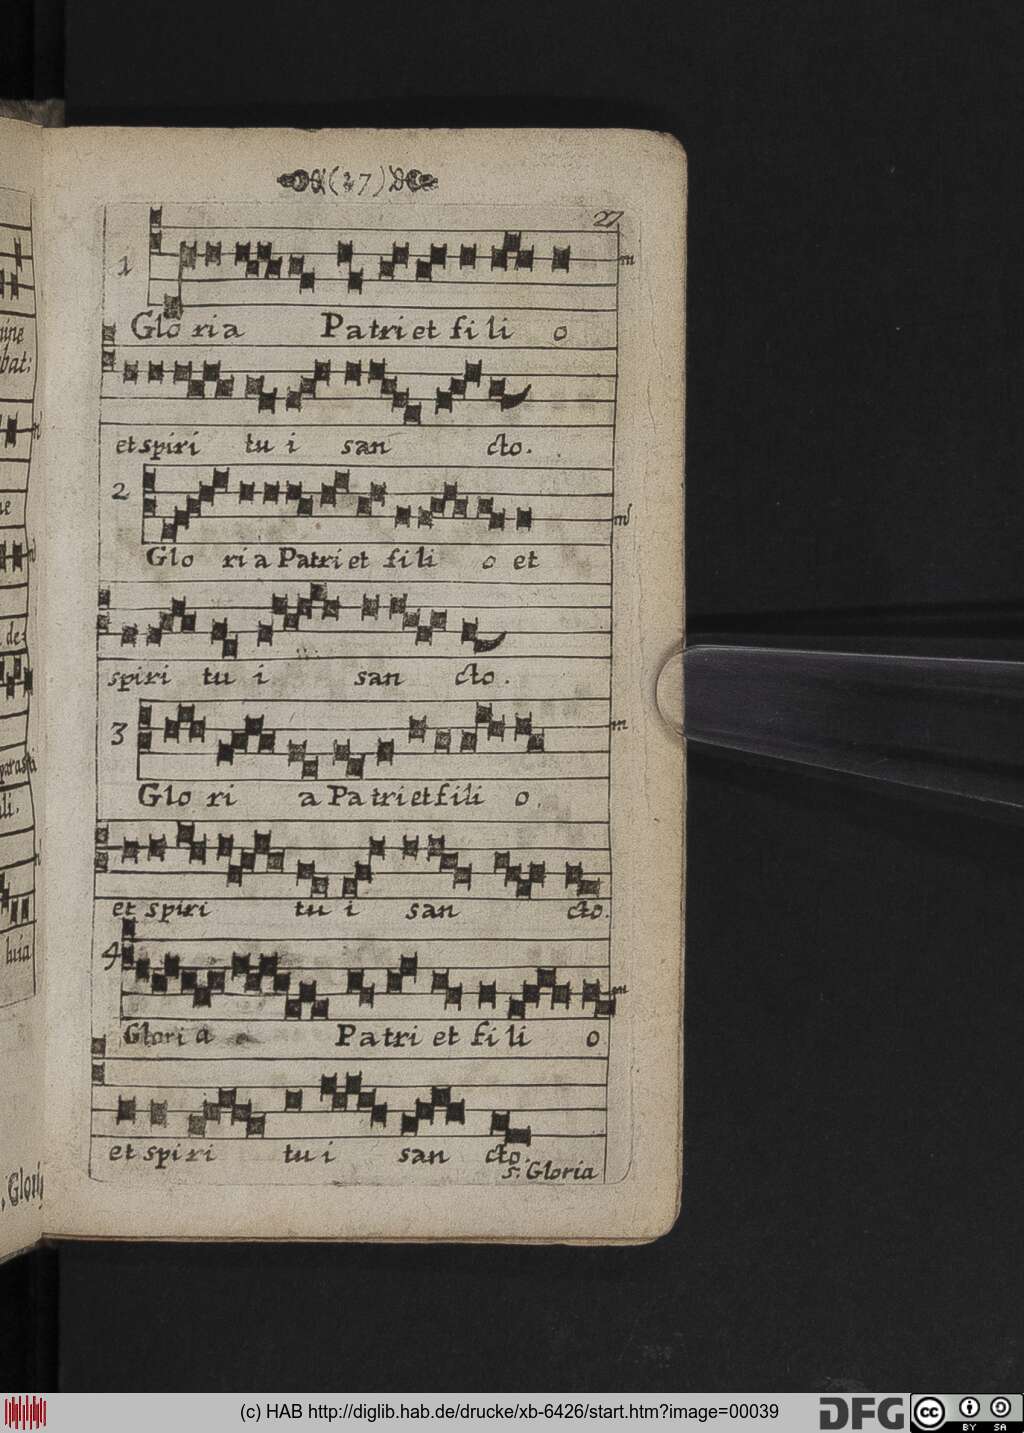 (27)
27
1
Glo ria Patri et fi li o
et spiri tu i san cto.
2
Glo ri a Patri et fi li o et
spiri tu i san cto.
3
Glo ri a Pa tri et fi li o.
et spiri tu i san cto.
4
Glori a Patri et fi li o
et spi ri tu i san cto.
s: Gloria
(c) HAB http://diglib.hab.de/drucke/xb-6426/start.htm?image=00039
DFG
cc
BY SA